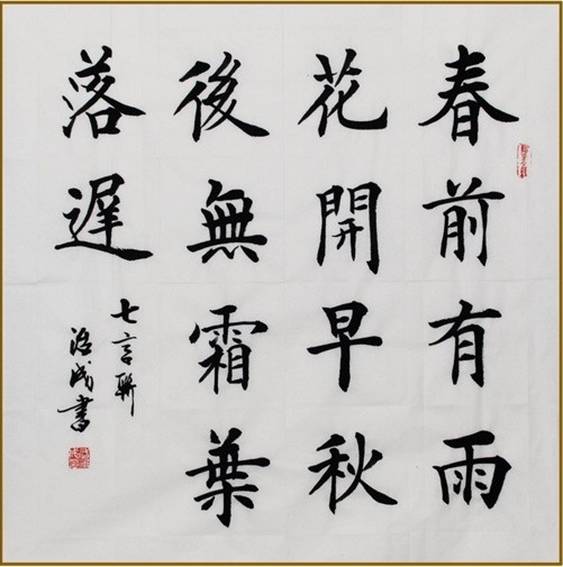 春前有雨
花開早秋
後無霜葉
落遲
七言聯
書